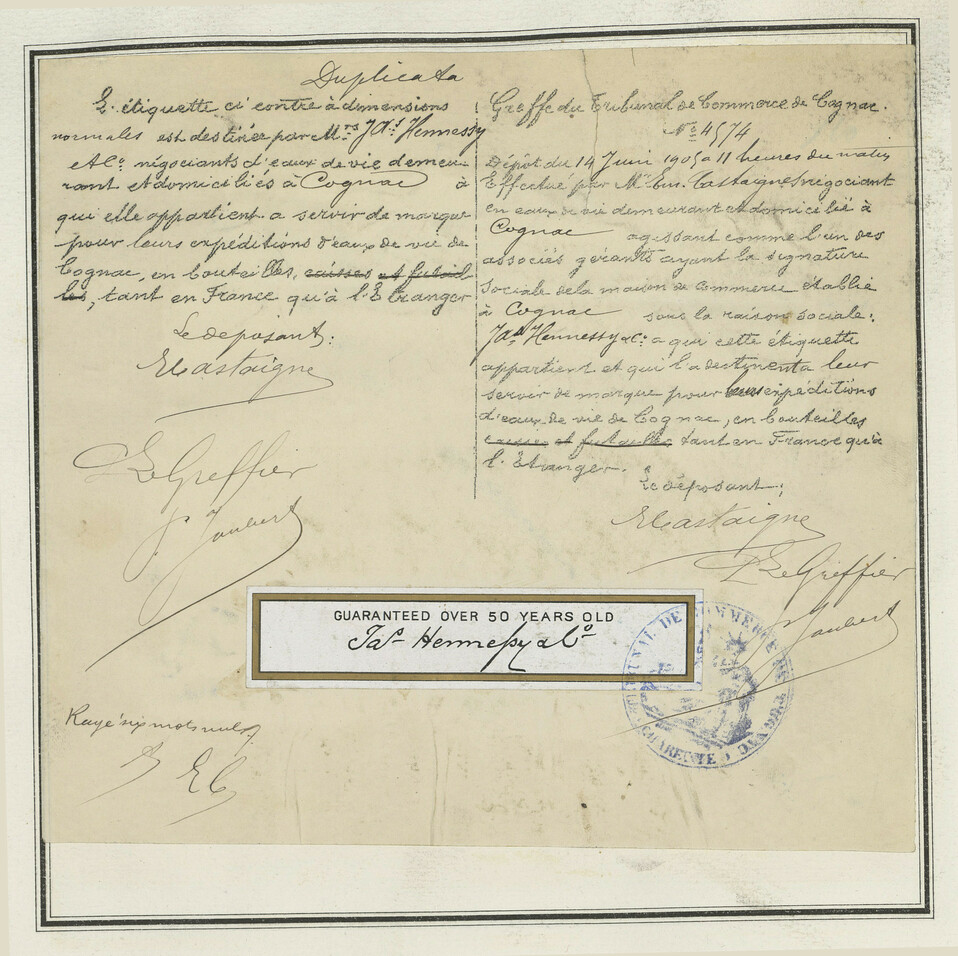 Duplicata
L'étiquette ci contre à dimensions
normales est destinée par Mrs Jas Hennessy
et Co négociants d'eaux de vie demeu-
rant et domiciliés à Cognac à
qui elle appartient a servir de marque
pour leurs expéditions d'eaux de vie de
Cognac, en bouteilles, caisses et futail
les, tant en France qu'à l'Étranger
Le déposant:
ECastaigne
Le Greffier
Joubert
Greffe du Tribunal de Commerce de Cognac.
No 4574
Dépôt du 14 Juin 1905 à 11 heures du matin
Effectué par Mr Em. Castaigne négociant
en eaux de vie demeurant et domicilié à
Cognac agissant comme l'un des
associés gérants ayant la signature
sociale de la maison de Commerce établie
à Cognac sous la raison sociale:
Jas Hennessy & Co a qui cette étiquette
appartient et qui l'a destinent a leur
servir de marque pour leurs expéditions
d'eaux de vie de Cognac, en bouteilles
caisses et futailles, tant en France qu'à
l'Étranger.
Le déposant;
ECastaigne
Le Greffier
Joubert
GUARANTEED OVER 50 YEARS OLD
Jas Hennessy & Co
TRIBUNAL DE COMMERCE DE COGNAC
CHARENTE
Rayé six mots nuls
J EC